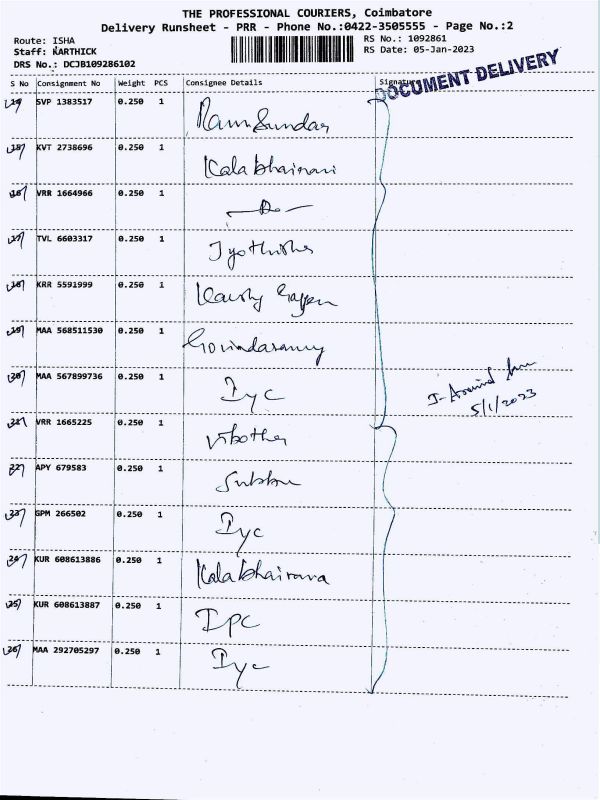 THE PROFESSIONAL COURIERS, Coimbatore
Delivery Runsheet - PRR - Phone No.:0422-3505555 - Page No.:2
Route: ISHA
Staff: KARTHICK
DRS No.: DCJB109286102
RS No.: 1092861
RS Date: 05-Jan-2023
DOCUMENT DELIVERY
S No Consignment No Weight PCS Consignee Details Signature
14 SVP 1383517 0.250 1 Ramsundar
15 KVT 2738696 0.250 1 Kalabhairavi
16 VRR 1664966 0.250 1
17 TVL 6603317 0.250 1 Jyothisha
18 KRR 5591999 0.250 1
19 MAA 568511530 0.250 1 Govindasamy
20 MAA 567899736 0.250 1 Iyc
5/1/2023
21 VRR 1665225 0.250 1
22 APY 679583 0.250 1
23 GPM 266502 0.250 1 Iyc
24 KUR 608613886 0.250 1 Kalabhairava
25 KUR 608613887 0.250 1 IPC
26 MAA 292705297 0.250 1 Iyc